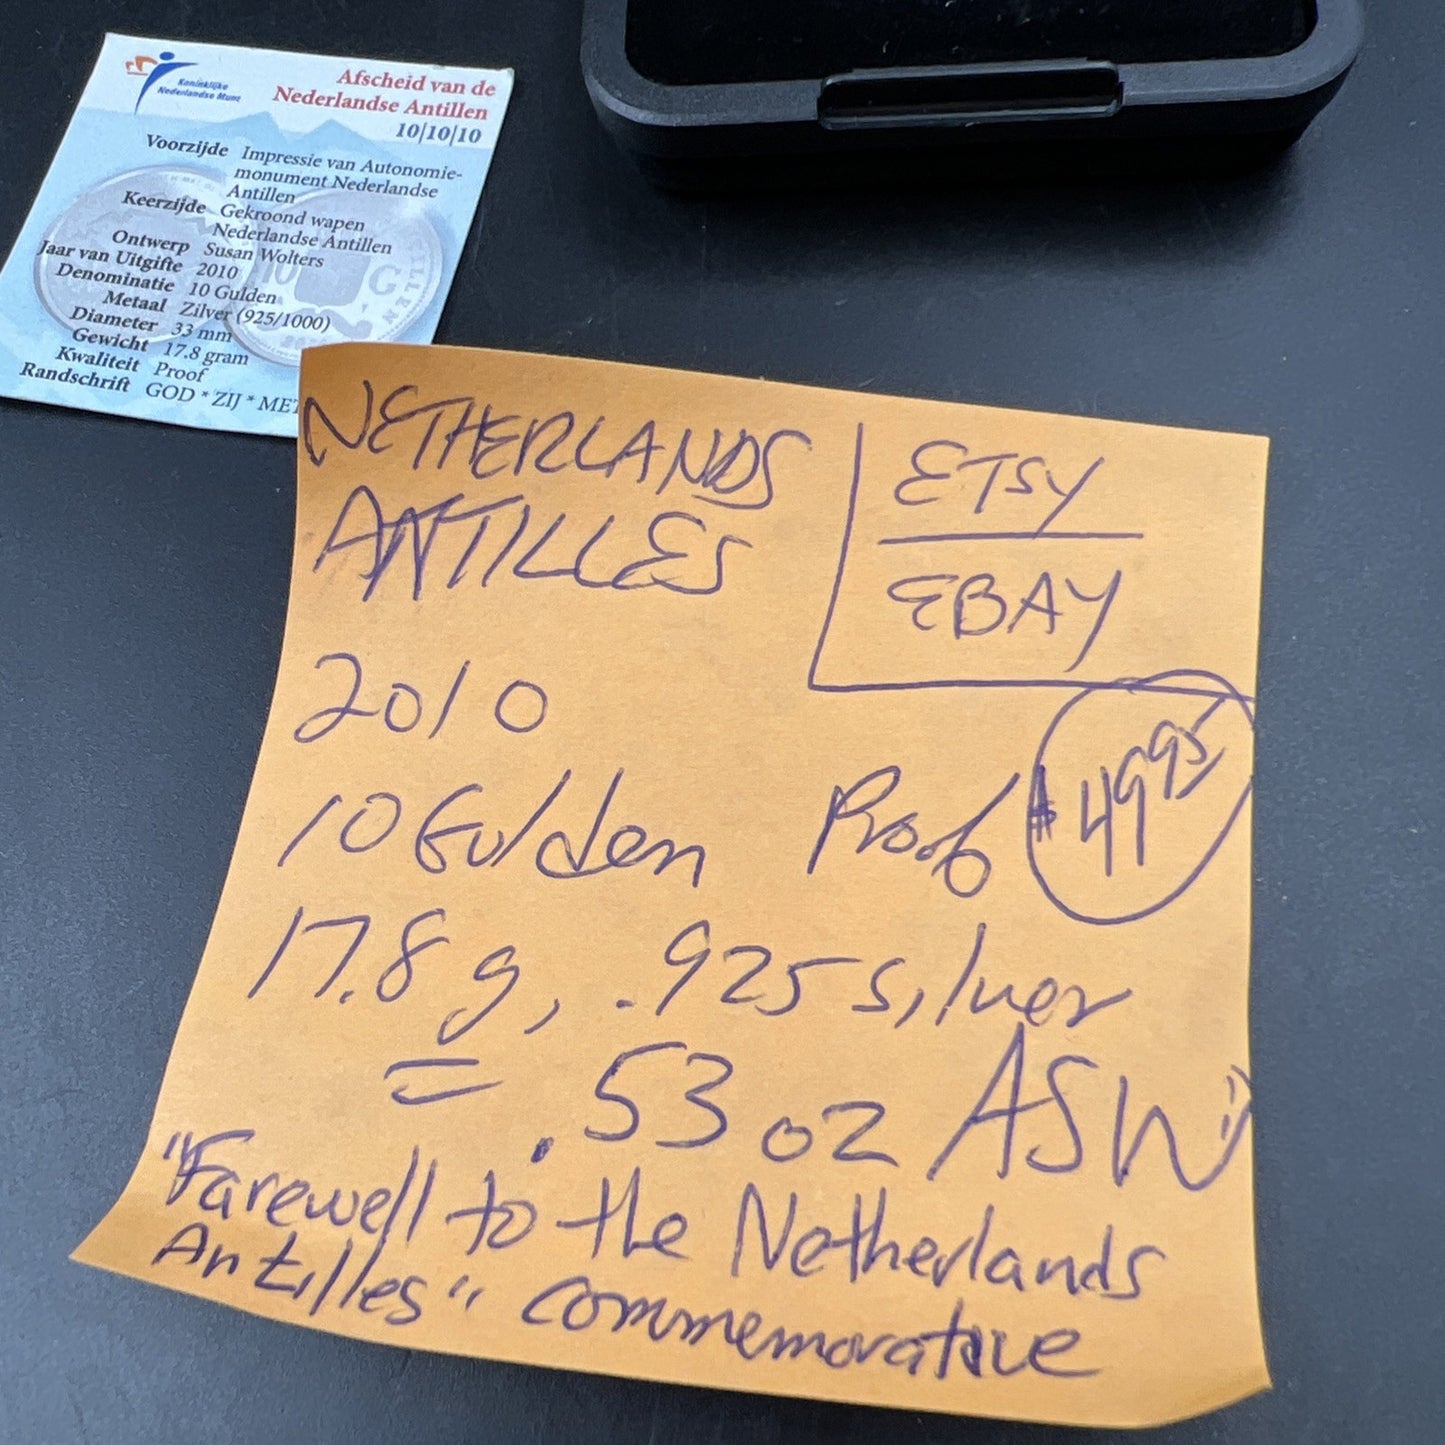 Koninklijke
Nederlandse Munt
Afscheid van de
Nederlandse Antillen
10|10|10
Voorzijde Impressie van Autonomie-
monument Nederlandse
Antillen
Keerzijde Gekroond wapen
Nederlandse Antillen
Ontwerp Susan Wolters
Jaar van Uitgifte 2010
Denominatie 10 Gulden
Metaal Zilver (925/1000)
Diameter 33 mm
Gewicht 17.8 gram
Kwaliteit Proof
Randschrift GOD * ZIJ * MET
10 G
NETHERLANDS
ANTILLES
ETSY
EBAY
2010
10 Gulden Proof $49.95
17.8 g, .925 silver
= .53 oz ASW :)
"Farewell to the Netherlands
Antilles" commemorative